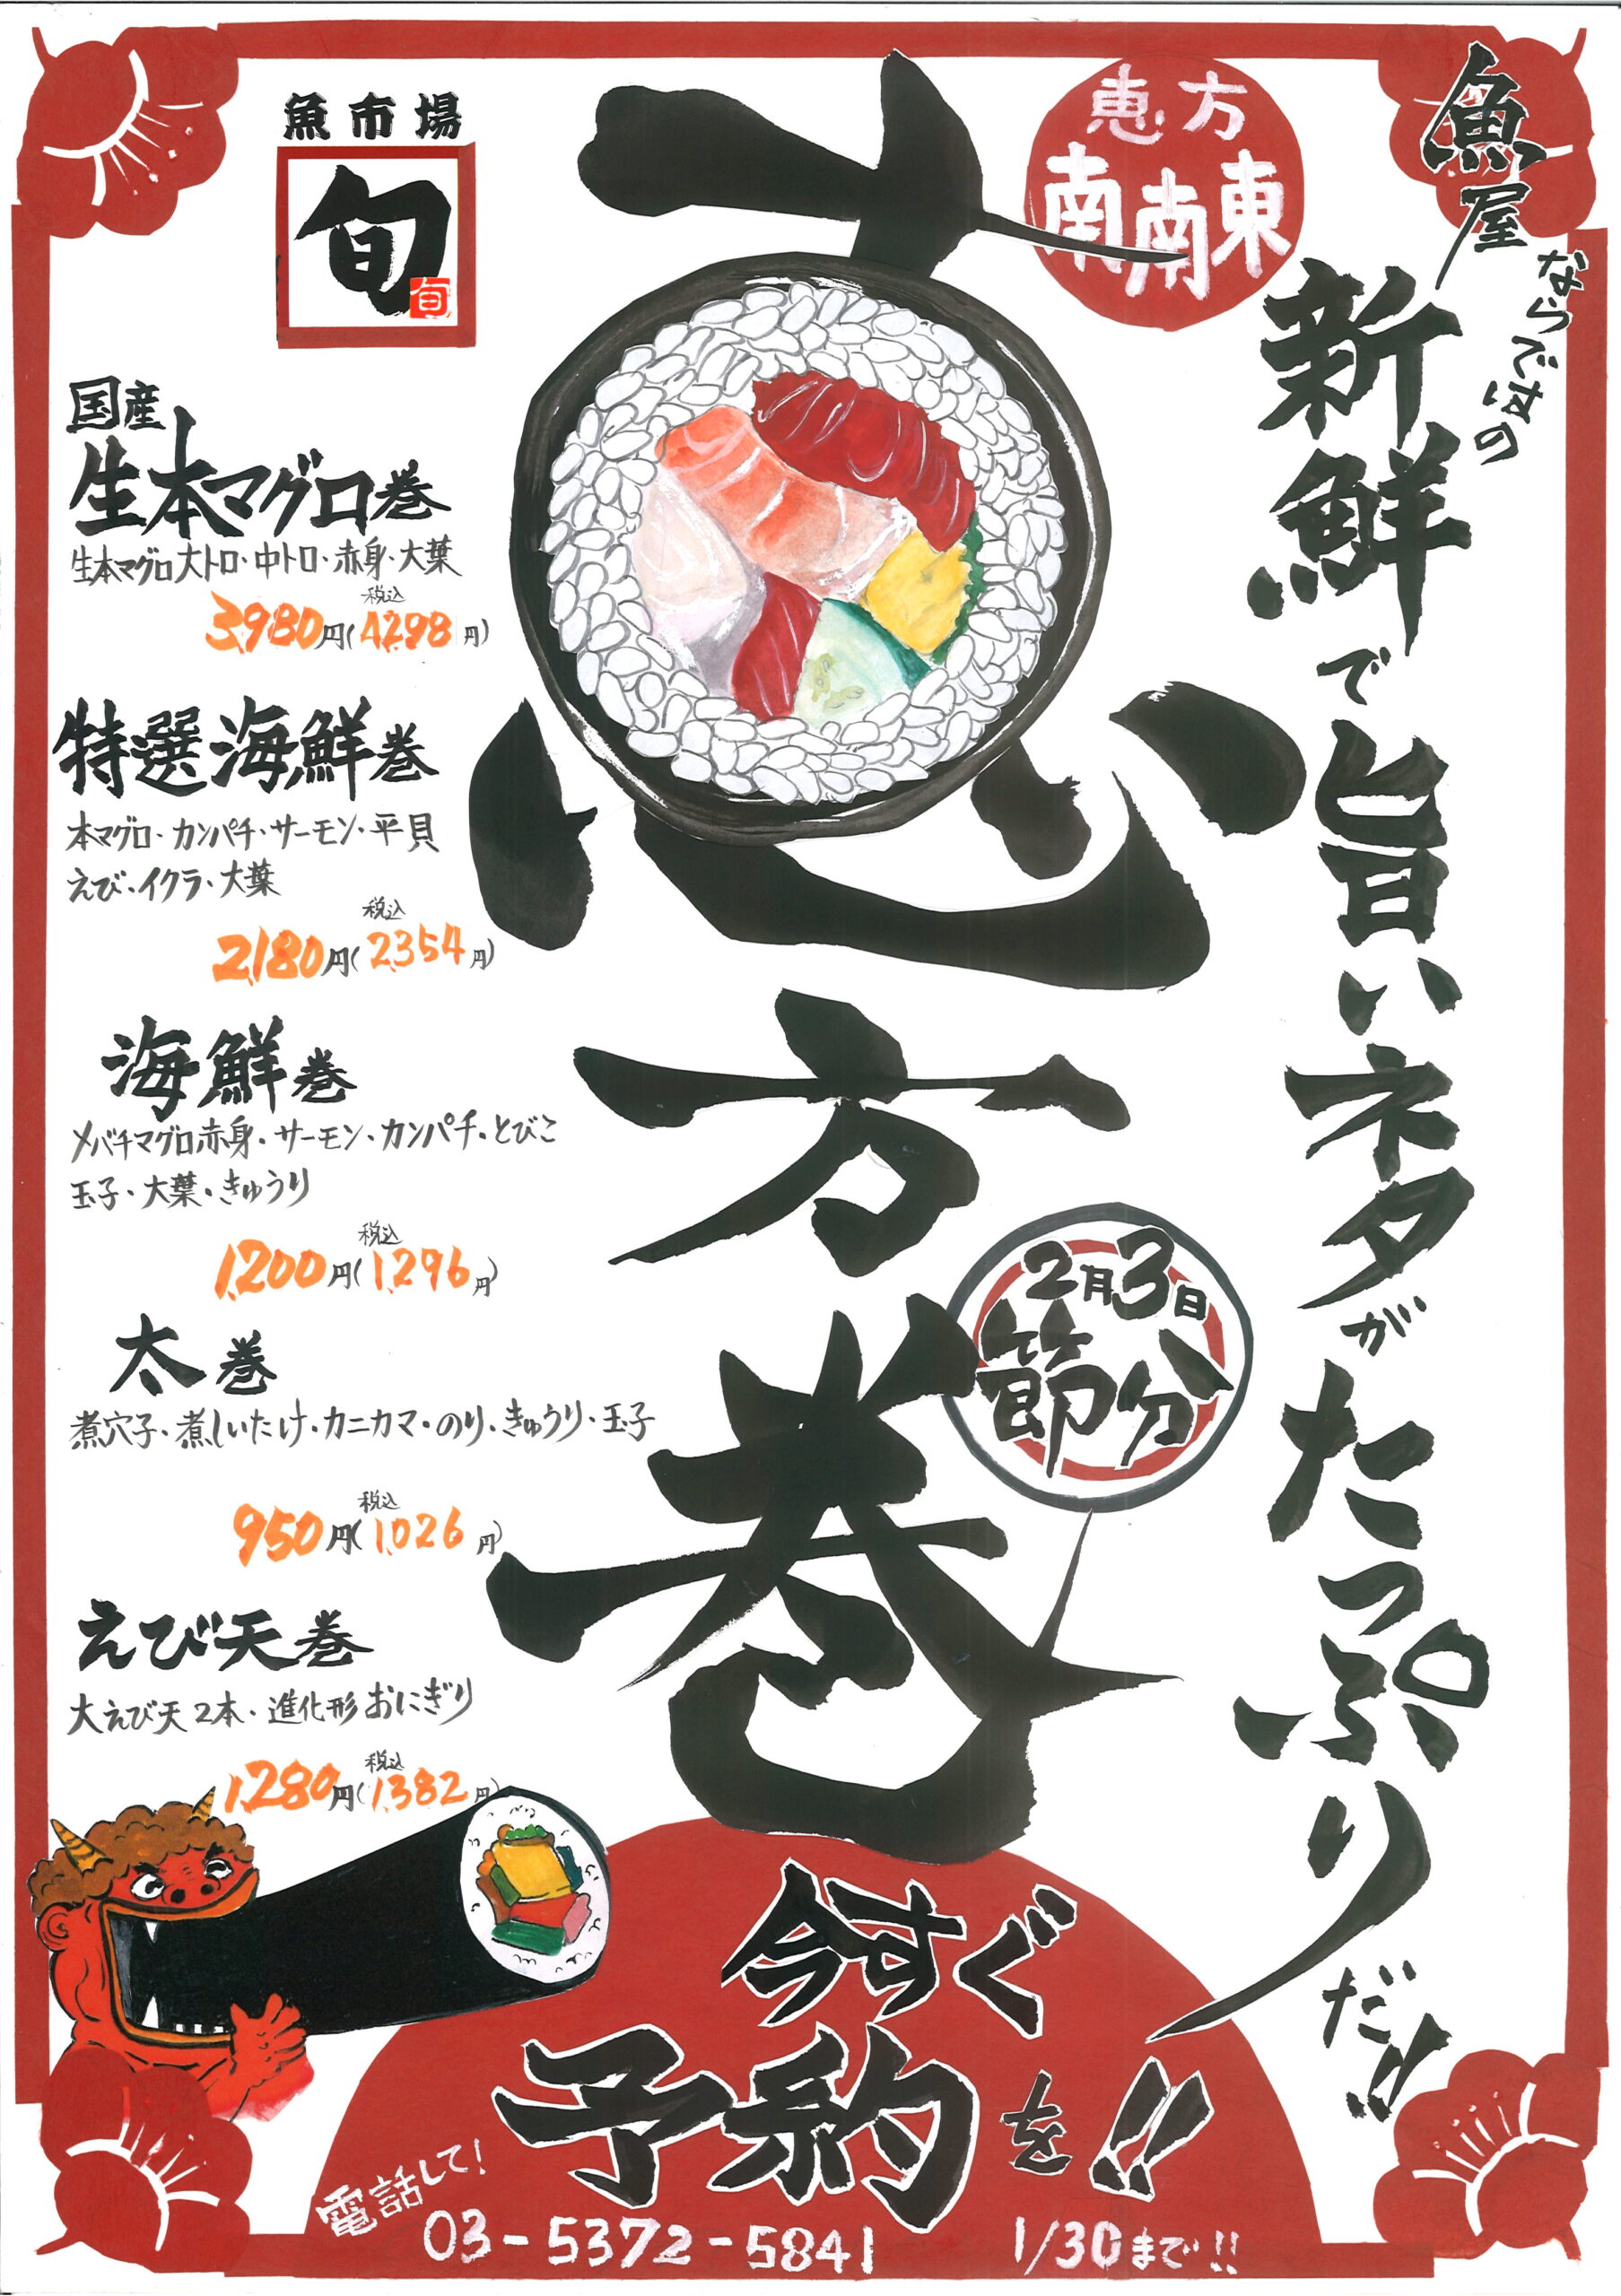 魚屋ならではの
新鮮で旨いネタがたっぷりだ!!
恵方
南南東
恵方巻
2月3日
節分
魚市場
旬
旬
国産
生本マグロ巻
生本マグロ大トロ・中トロ・赤身・大葉
税込
3,980円(4,298円)
特選海鮮巻
本マグロ・カンパチ・サーモン・平貝
えび・イクラ・大葉
税込
2,180円(2,354円)
海鮮巻
メバチマグロ赤身・サーモン・カンパチ・とびこ
玉子・大葉・きゅうり
税込
1,200円(1,296円)
太巻
煮穴子・煮しいたけ・カニカマ・のり・きゅうり・玉子
税込
950円(1,026円)
えび天巻
大えび天2本・進化形おにぎり
税込
1,280円(1,382円)
今すぐ
予約を!!
電話して!
03-5372-5841
1/30まで!!